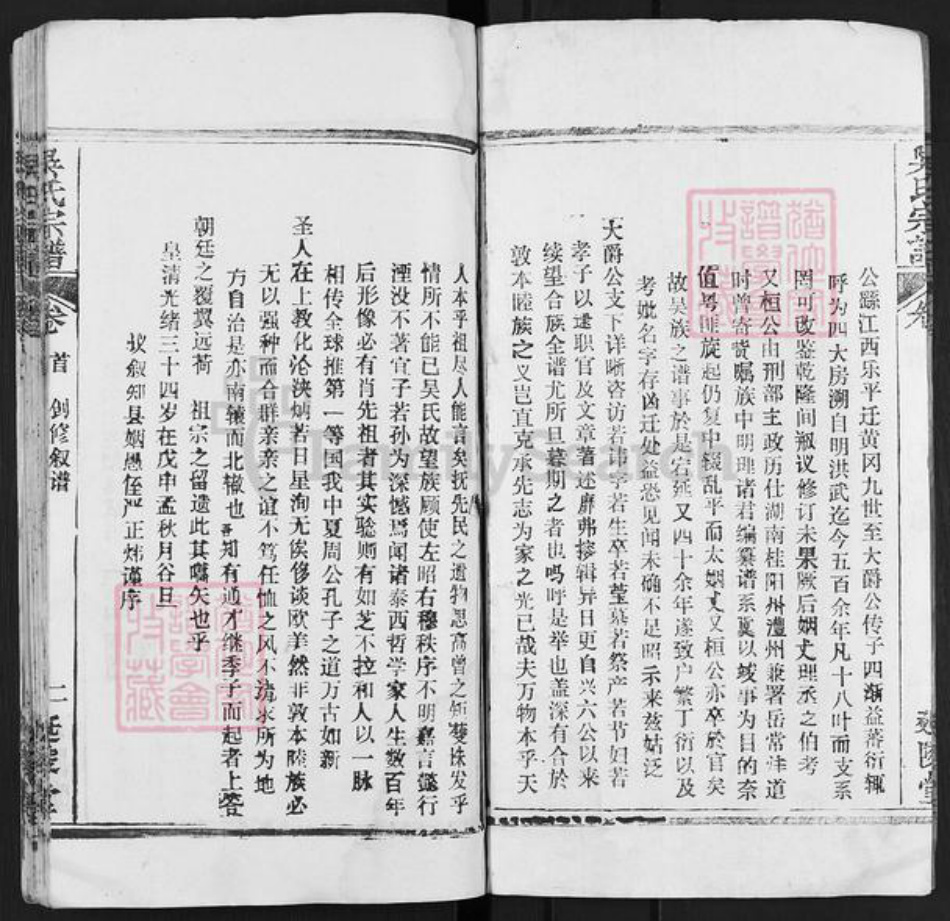 吴氏宗谱
卷
延陵堂
公繇江西乐平迁黄冈九世至大爵公传子四渐益蕃衍辄
呼为四大房溯自明洪武迄今五百余年凡十八叶而支系
罔可改鉴乾隆间溆议修订未果厥后姻丈理丞之伯考
又桓公由刑部主政历仕湖南桂阳州澧州兼署岳常沣道
时曾寄赀嘱族中明理诸君编纂谱系冀以竣事为目的奈
值粤匪旋起仍复中辍乱平而太姻丈又桓公亦卒於官矣
故吴族之谱事於是宕延又四十余年遂致户繁丁衍以及
考妣名字存凶迁处益恐见闻未确不足昭示来兹姑泛
大爵公支下详晰咨访若讳字若生卒若莹墓若祭产若节妇若
孝子以逮职官及文章著述靡弗掺辑异日更自兴六公以来
续望合族全谱尤所旦暮期之者也吗呼是举也盖深有合於
敦本睦族之义岂直克承先志为家之光已哉夫万物本乎天
人本乎祖尽人能言矣抚先民之遗物思高曾之矩蒦姝发乎
情所不能已吴氏故望族顾使左昭右穆秩序不明嘉言懿行
湮没不著宜子若孙为深憾焉闻诸泰西哲学家人生数百年
后形像必有肖先祖者其实验则有如芝不拉和人以一脉
相传全球推第一等国我中夏周公孔子之道万古如新
圣人在上教化沦浃炳若日星洵无俟侈谈欧美然非敦本睦族必
无以强种而合群亲亲之谊不笃任恤之风不 求所为地
方自治是亦南辕而北辙也吾知有通才继季子而起者上答
朝廷之覆翼远荷 祖宗之留遗此其嚆矢也乎
皇清光绪三十四岁在戊申孟秋月谷旦
议叙知县姻愚侄严正炜谨序
吴氏宗谱
卷首
创修叙谱
二
延陵堂